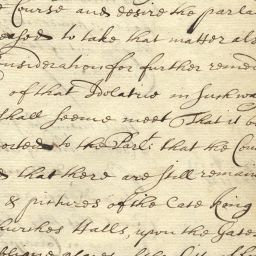 Course and desire the parla
eased to take that matter als
onsideration for further remed
of that Idolatrie in such wa
shall seeme meet That it b
orted to the Parl.t that the Cou
s that there are still remain
& pictures of the late King
hurches Halls, upon the Gates